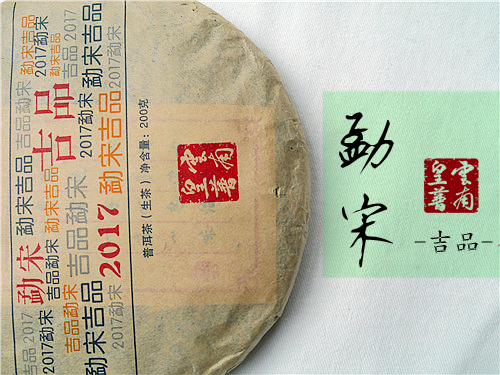 吉品 2017
勐宋吉品
吉品勐宋
勐宋吉品
2017勐宋
勐宋
2017勐宋
吉品勐宋
吉品勐宋
勐宋吉品
吉品勐宋
吉品
吉品 2017
吉品勐宋
勐宋吉品
2017勐宋
勐宋吉品
2017
勐宋吉品
2017勐宋
普洱茶（生茶）净含量：200克
雲南
皇普
勐宋
雲南
皇普
-吉品-